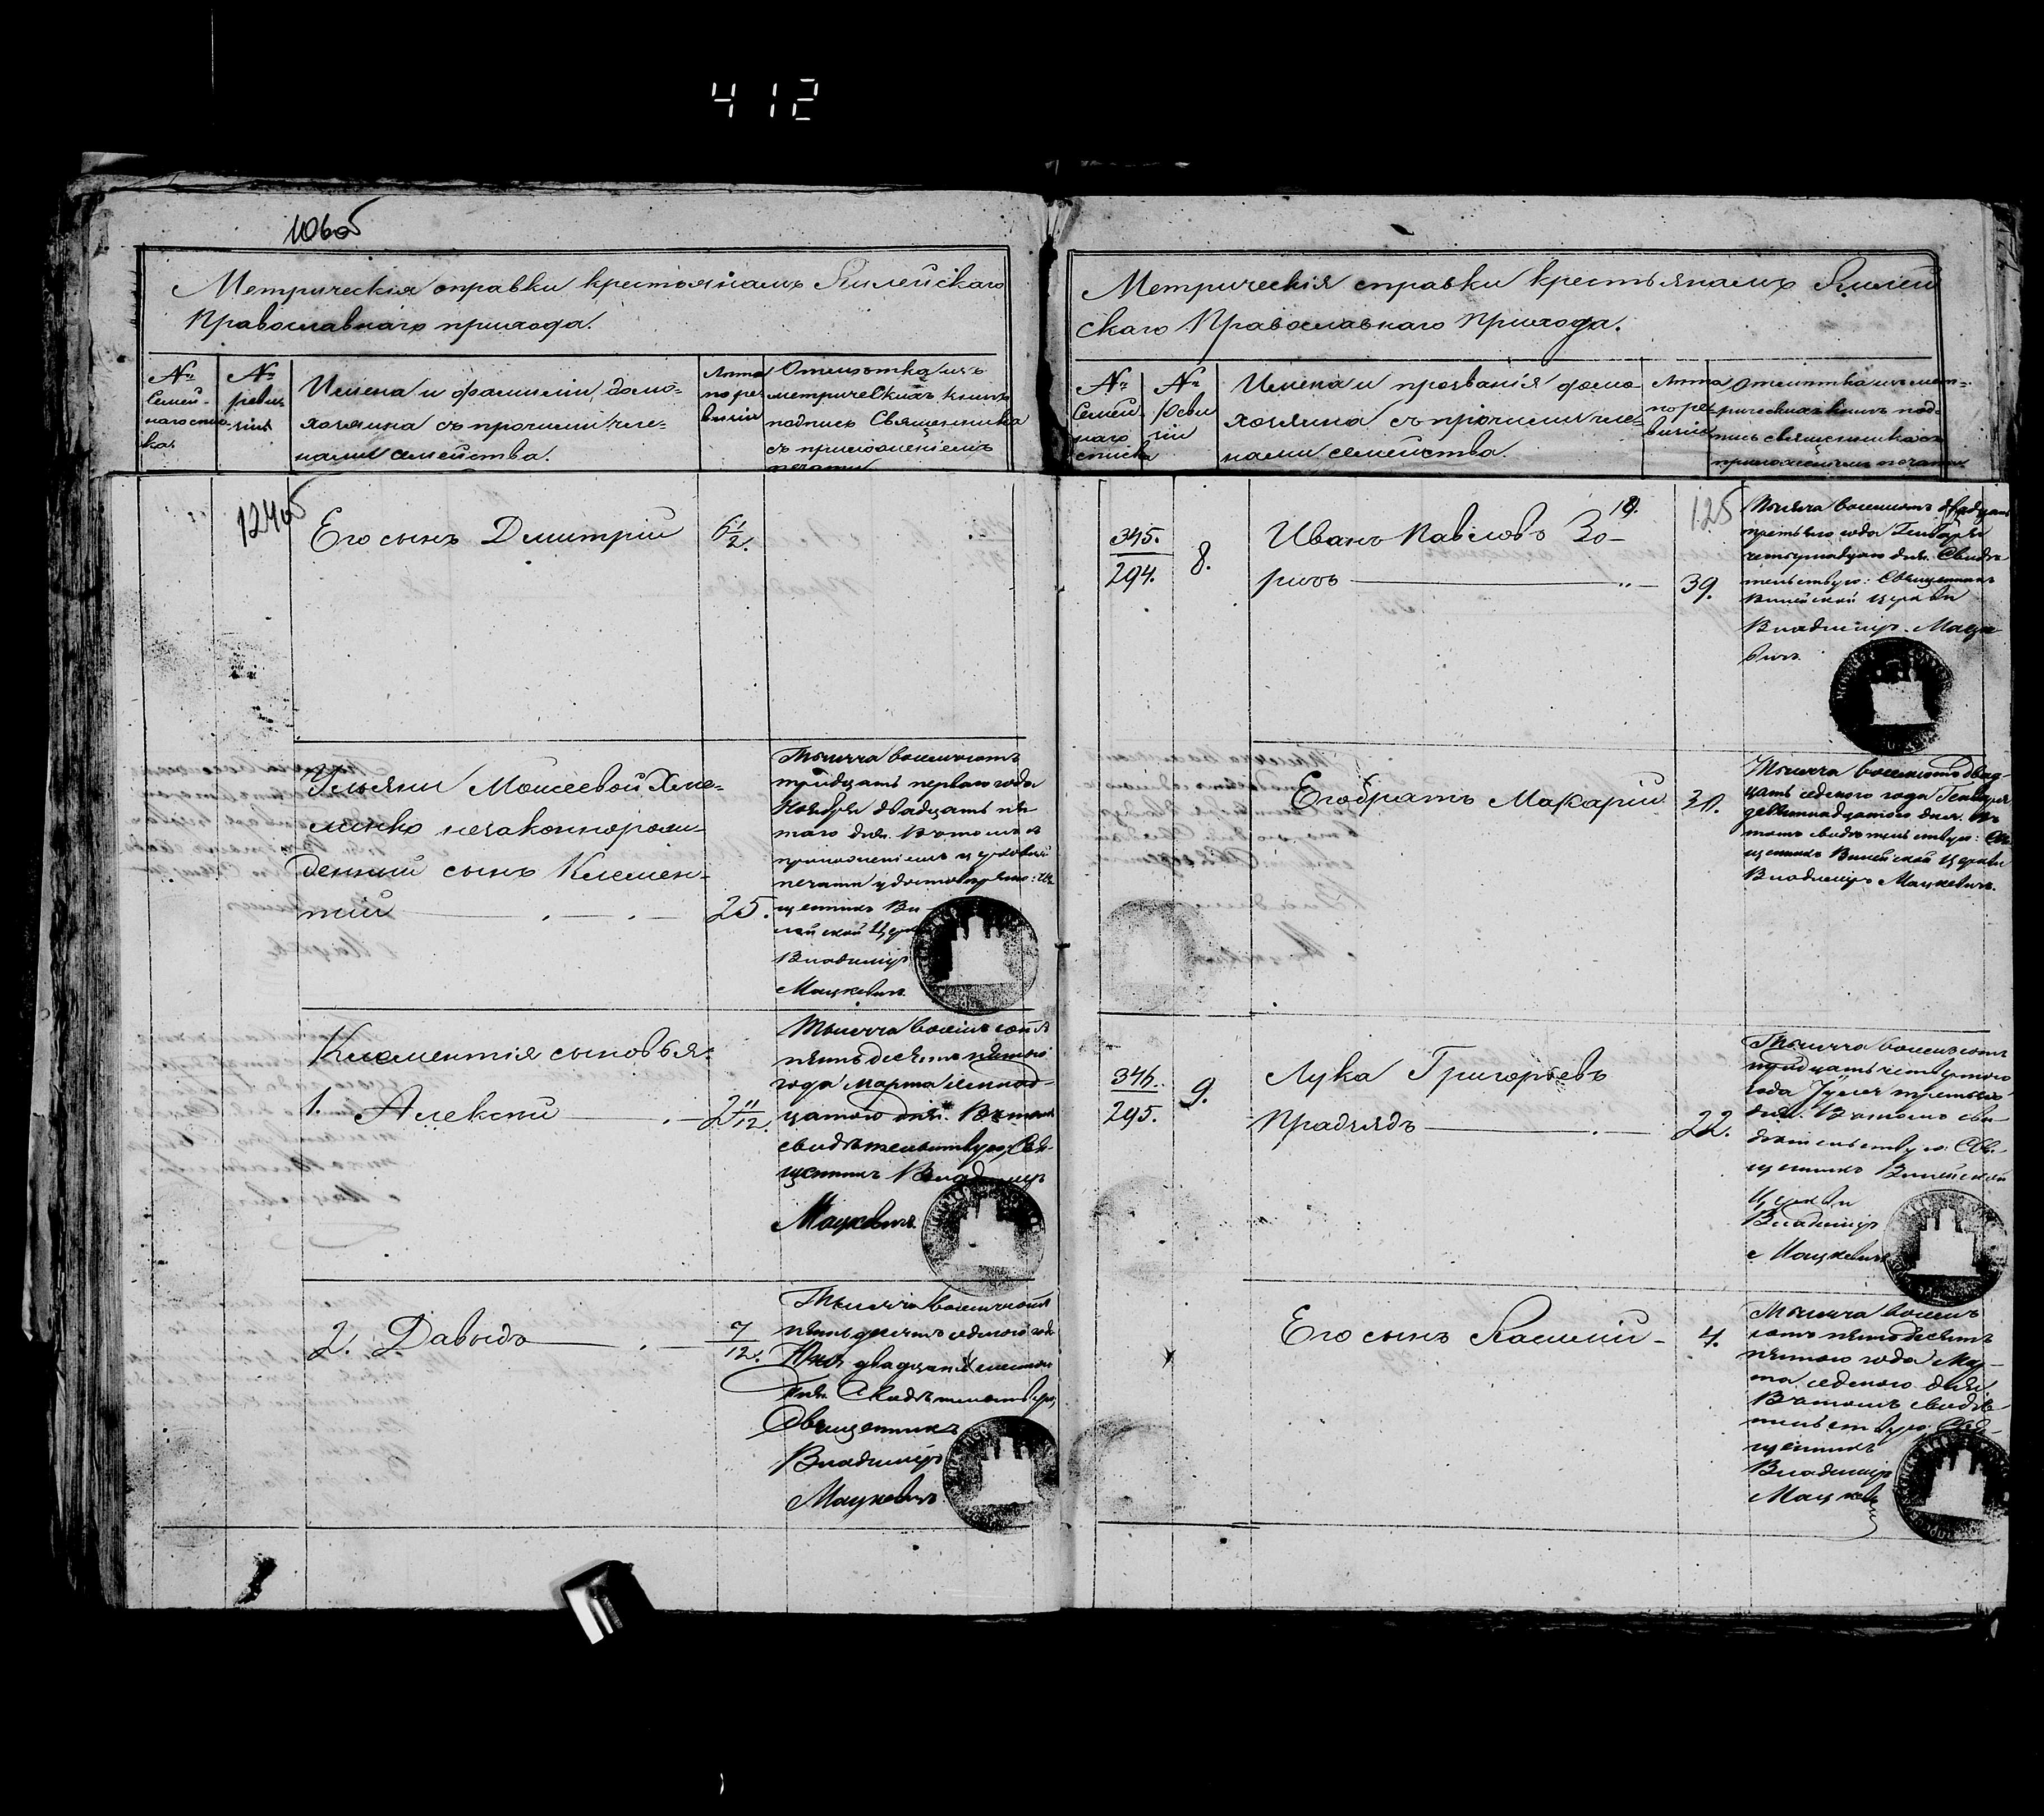 412
106об
Метрическія справки крестьянамъ Вилейскаго
Православнаго прихода.
№ Семей-наго спис-ка.
№ реви-зіи
Имена и фамиліи домо-
хозяина съ прочими чле-
нами семейства.
Лѣта по ре-визіи
Отмѣтка изъ
метрическихъ книгъ
подпись Священника
съ приложеніемъ
печати
124об
Его сынъ Димитрій 6 1/2.
Ульяни Моисеевой Хме-
линко незаконнорож-
денный сынъ Климен-
тій 25.
Тысяча восемьсотъ
тридцать перваго года
Ноября двадцать пя-
таго дня. Въ томъ съ
приложеніемъ церковной
печати удостовѣряю: Свя-
щенникъ Ви-
лейской Церкви
Владиміръ
Мацкевичъ.
Климентія сыновья:
1. Алексѣй 2 11/12.
Тысяча восемьсотъ
пятьдесятъ пятаго
года Марта
дня. Въ томъ
свидѣтельствую, Свя-
щенникъ Владиміръ
Мацкевичъ.
2. Давыдъ 7/12.
Тысяча восемьсотъ
пятьдесятъ седмаго года
двадцать
дня. Свидѣтельствую,
Священникъ
Владиміръ
Мацкевичъ.
Метрическія справки крестьянамъ Вилей
скаго Православнаго Прихода.
№ Семей-наго списка
№ Реви зіи
Имена и прозванія домо-
хозяина съ прочими чле-
нами семейства.
Лѣта по ре-визіи
Отмѣтка изъ мет-
рическихъ книгъ под-
пись священника съ
приложеніемъ печати
125
345. 294.
8.
Иванъ Павловъ Зо-
ричъ 39.
Тысяча восемьсотъ двадцать
третьяго года Генваря
четырнадцаго дня. Свидѣ-
тельствую: Священникъ
Вилейской Церкви
Владиміръ Мацке-
вичъ.
Его братъ Макарій 31.
Тысяча восемьсотъ двад-
цать седмаго года Генваря
девятнадцатаго дня. Въ
томъ свидѣтельствую: Свя-
щенникъ Вилейской Церкви
Владиміръ Мацкевичъ.
346. 295.
9.
Лука Григорьевъ
Прадзядъ 22.
Тысяча восемьсотъ
тридцать четвертаго
года Іулія третьяго
дня. Въ томъ сви-
дѣтельствую. Свя-
щенникъ Вилейской
Церкви
Владиміръ
Мацкевичъ
Его сынъ Василій 4.
Тысяча восемь
сотъ пятьдесятъ
пятаго года Мар-
та седмаго дня.
Въ томъ свидѣ-
тельствую. Свя-
щенникъ
Владиміръ
Мацкевичъ